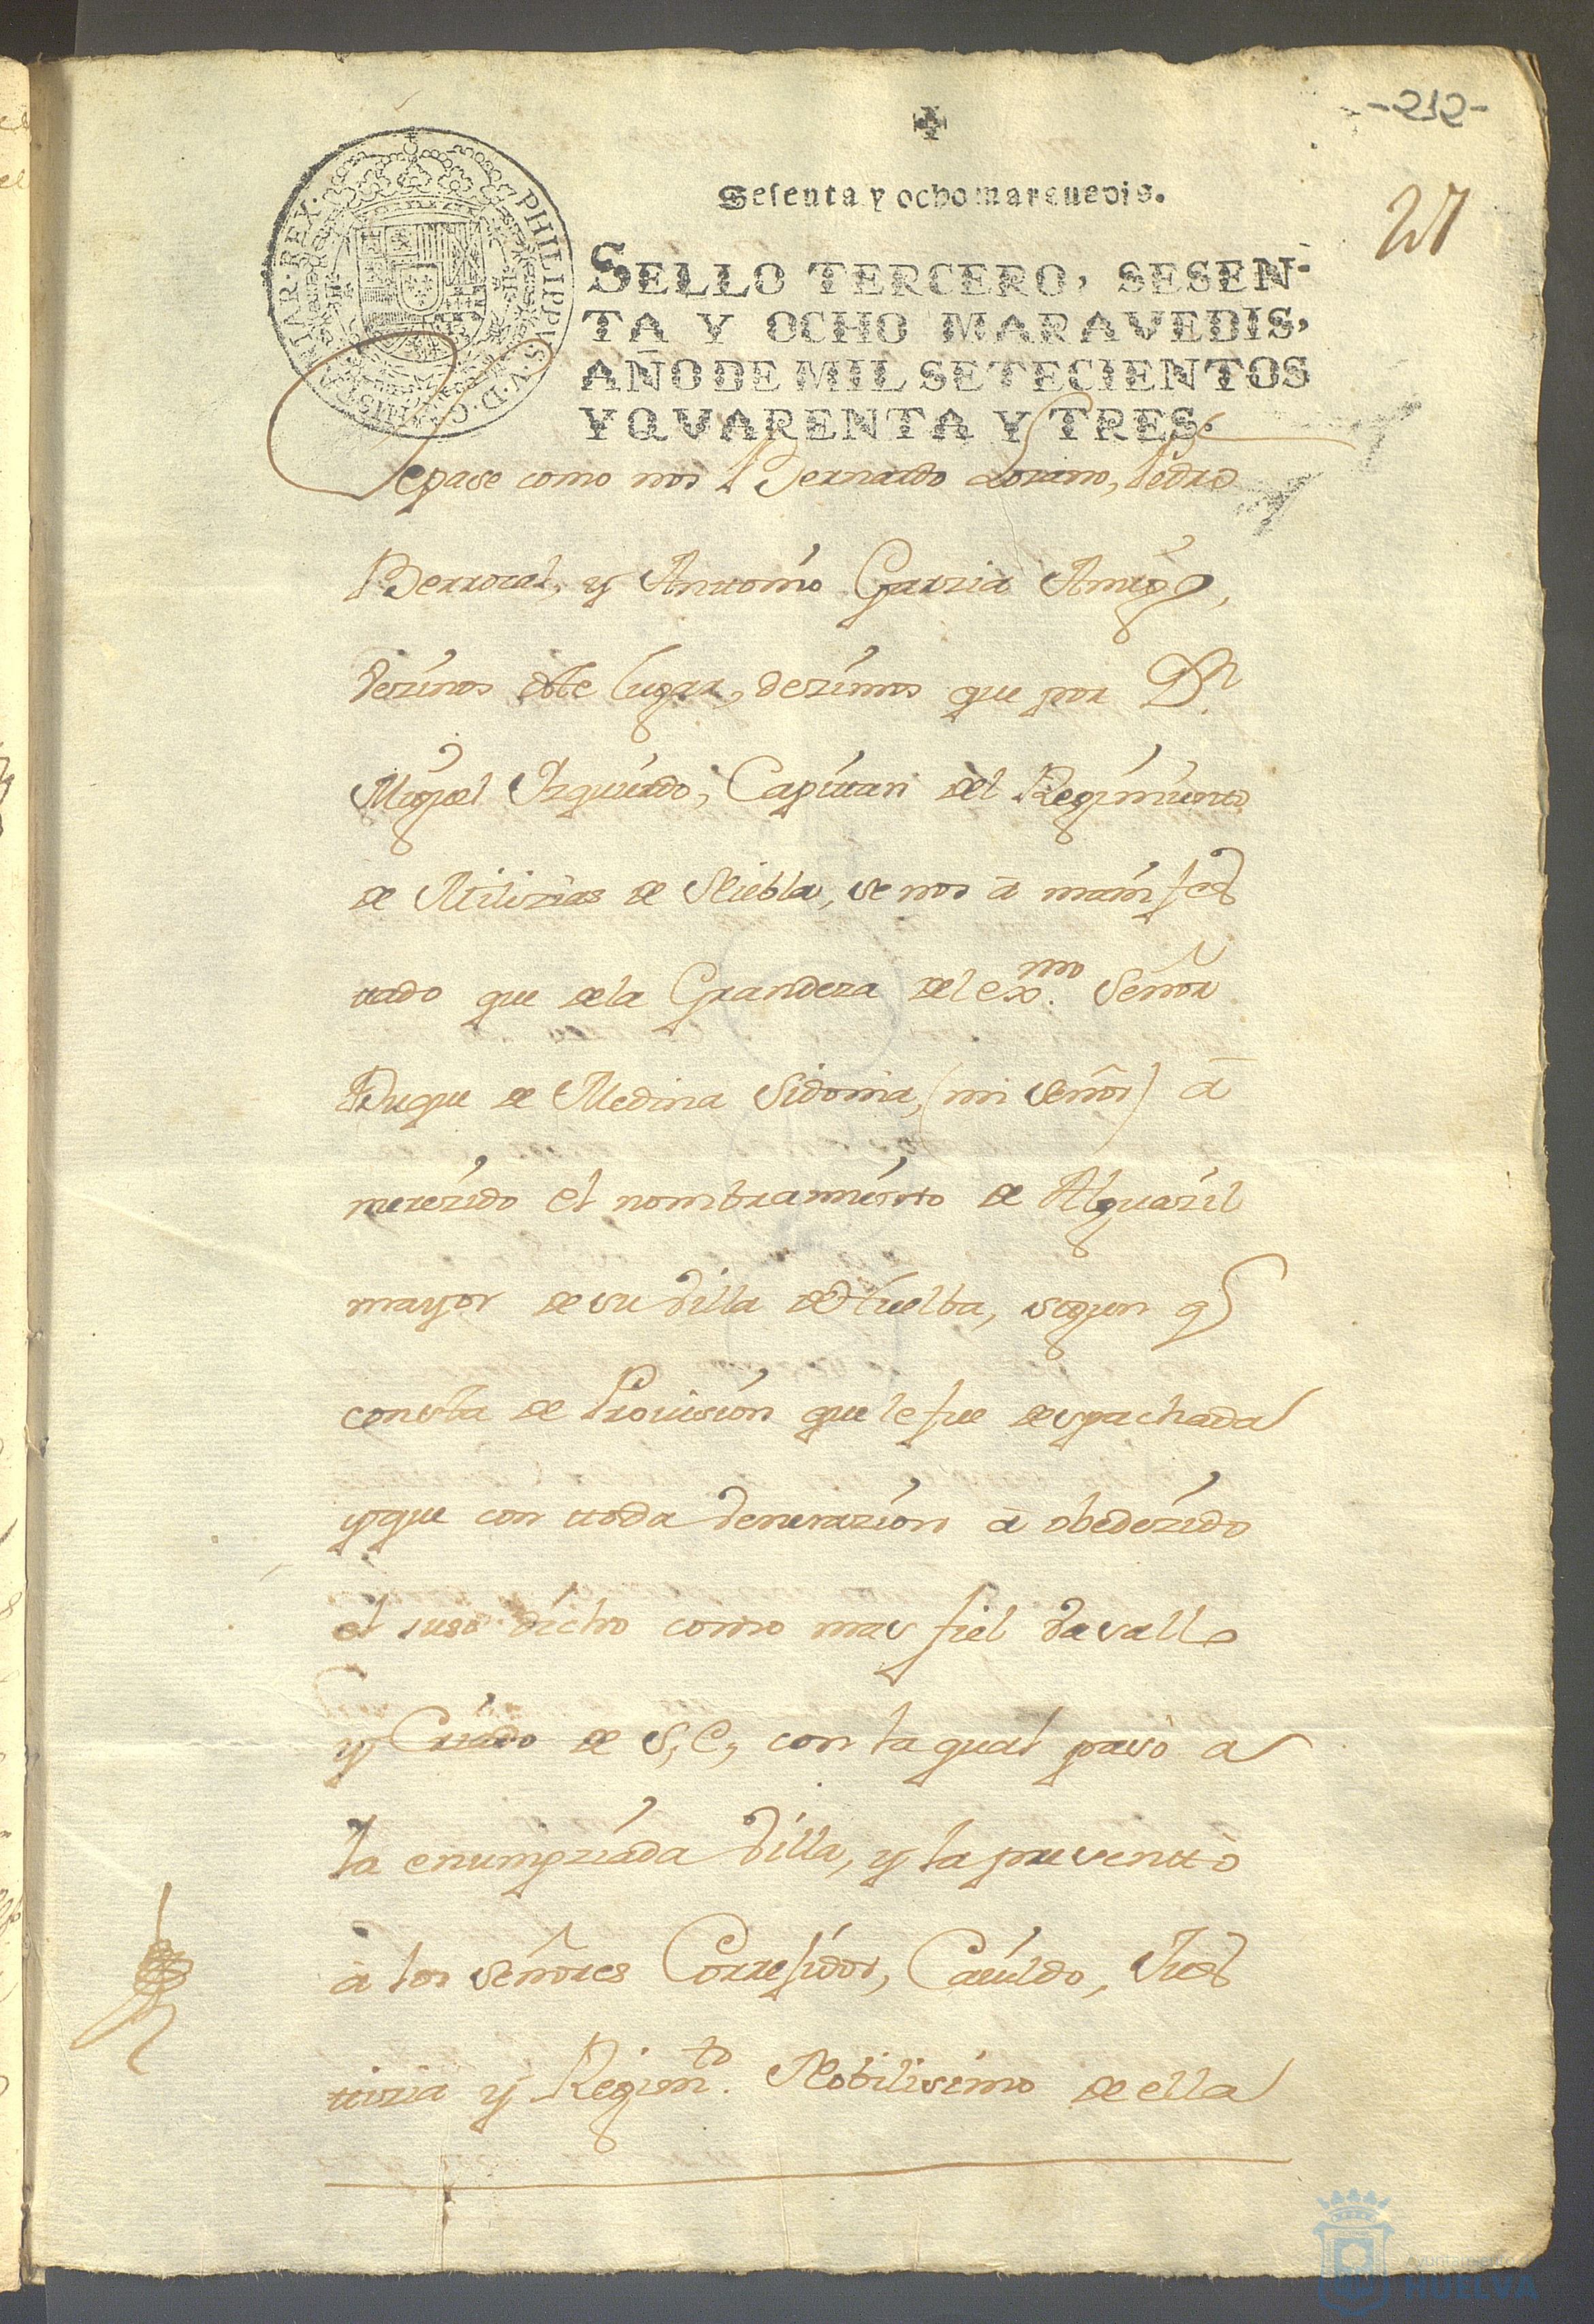 -212-
27
Sesenta y ocho maravedis.
PHILIPPUS. V. D. G. HISPANIAR. REX.
SELLO TERCERO, SESEN-
TA Y OCHO MARAVEDIS,
AÑO DE MIL SETECIENTOS
Y QVARENTA Y TRES.
Sepase como nos Bernardo Lorano, Pedro
Berrocal, y Anttonio Garzia Amigo,
vezinos deste lugar, dezimos que por Dn.
Miguel Yzquierdo, Capittan del Regimientto
de Milizias de Niebla, se nos â manifes
ttado que de la Grandeza del exmo. Señor
Duque de Medina Sidonia, (mi señor) â
merezido el nombramientto de Alguazil
mayor de su Villa de Huelba, segun q
consta de Provision que le fue despachada
y que con ttoda venerazion â obedezido
el suso dicho como mas fiel vasallo
y Criado de S, E, con la qual pasò a
la enumpziada Villa, y la presenttò
â los señores Correxidor, Cavildo, Jus
ttizia y Regimto. Nobilisimo de ella
Ayuntamiento
HUELVA